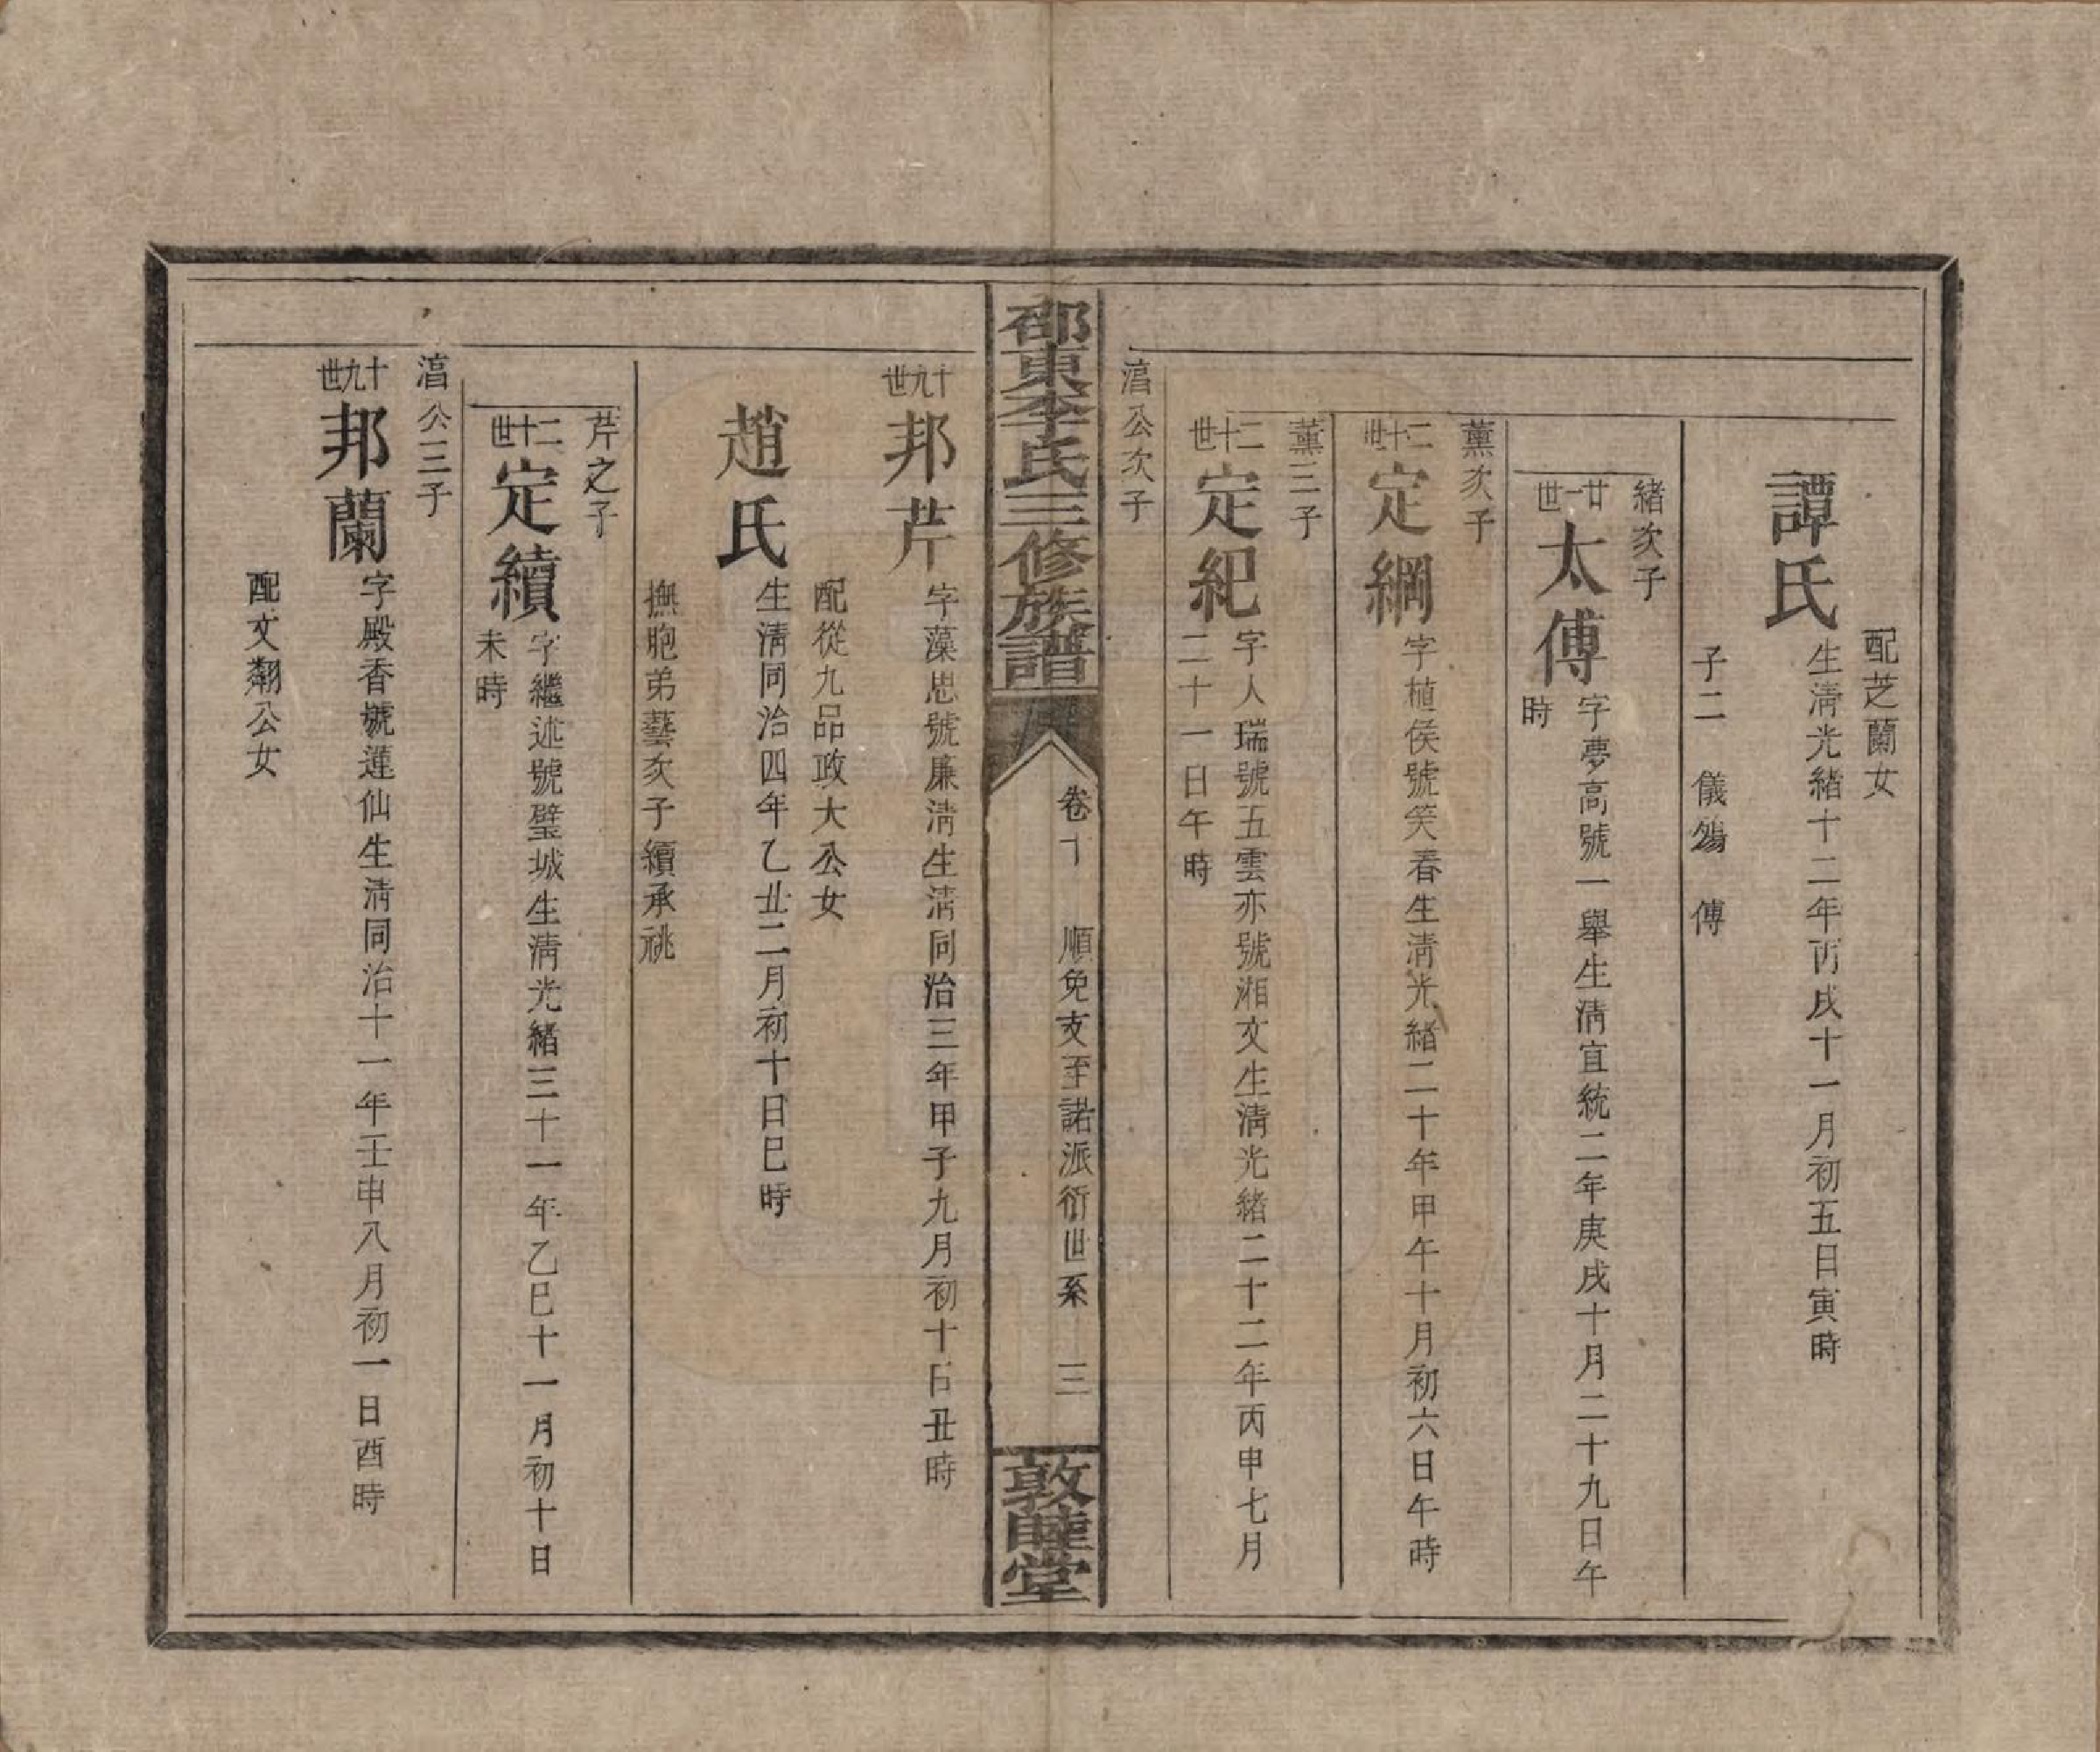 配芝蘭女
譚氏 生淸光緒十二年丙戌十一月初五日寅時
子二 儀 傅
緒次子
廿一世 太傅 字夢高號一舉生淸宣統二年庚戌十月二十九日午
時
薰次子
二十世 定綱 字植侯號笑春生淸光緒二十年甲午十月初六日午時
薰三子
二十世 定紀 字人瑞號五雲亦號湘文生淸光緒二十二年丙申七月
二十一日午時
濸公次子
邵東李氏三修族譜 卷十 順免支至諾派衍世系 三 敦睦堂
十九世 邦芹 字藻思號廉淸生淸同治三年甲子九月初十日丑時
配從九品政大公女
趙氏 生淸同治四年乙丑二月初十日巳時
撫胞弟藝次子續承祧
芹之子
二十世 定續 字繼述號璧城生淸光緒三十一年乙巳十一月初十日
未時
濸公三子
十九世 邦蘭 字殿香號蓮仙生淸同治十一年壬申八月初一日酉時
配文翱公女